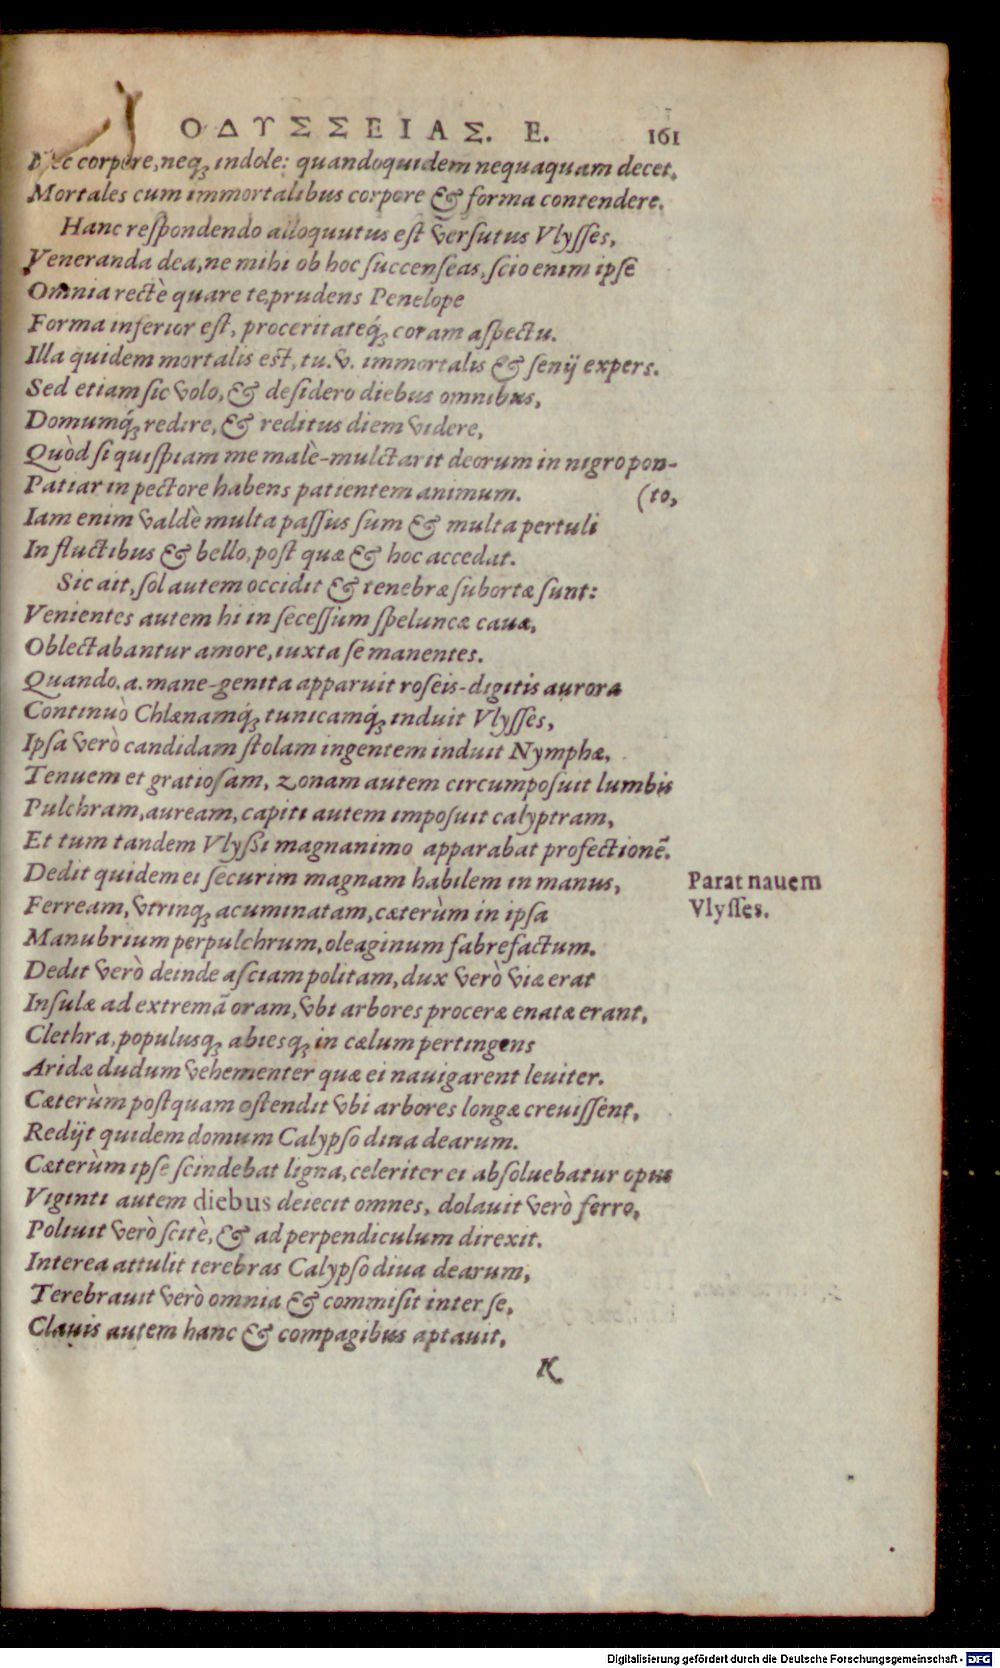 ΟΔΥΣΣΕΙΑΣ. Ε. 161
Nec corpore, neq; indole: quandoquidem nequaquam decet,
Mortales cum immortalibus corpore & forma contendere.
Hanc respondendo alloquutus est versutus Vlysses,
Veneranda dea, ne mihi ob hoc succenseas, scio enim ipse
Omnia rectè quare te, prudens Penelope
Forma inferior est, proceritateq́; coram aspectu.
Illa quidem mortalis est, tu. v. immortalis & senij expers.
Sed etiam sic volo, & desidero diebus omnibus,
Domumq́; redire, & reditus diem videre,
Quòd si quispiam me malè-mulctarit deorum in nigro pon-
Patiar in pectore habens patientem animum. (to,
Iam enim valdè multa passus sum & multa pertuli
In fluctibus & bello, post quæ & hoc accedat.
Sic ait, sol autem occidit & tenebræ subortæ sunt:
Venientes autem hi in secessum speluncæ cauæ,
Oblectabantur amore, iuxta se manentes.
Quando. a. mane-genita apparuit roseis-digitis aurora
Continuò Chlænamq́; tunicamq́; induit Vlysses,
Ipsa verò candidam stolam ingentem induit Nymphæ,
Tenuem et gratiosam, zonam autem circumposuit lumbis
Pulchram, auream, capiti autem imposuit calyptram,
Et tum tandem Vlyssi magnanimo apparabat profectionē.
Dedit quidem ei securim magnam habilem in manus,
Ferream, vtrinq; acuminatam, cæterùm in ipsa
Manubrium perpulchrum, oleaginum fabrefactum.
Dedit verò deinde asciam politam, dux verò viæ erat
Insulæ ad extremā oram, vbi arbores proceræ enatæ erant,
Clethra, populusq; abiesq; in cælum pertingens
Aridæ dudum vehementer quæ ei nauigarent leuiter.
Cæterùm postquam ostendit vbi arbores longæ creuissent,
Redijt quidem domum Calypso diua dearum.
Cæterùm ipse scindebat ligna, celeriter ei absoluebatur opus
Viginti autem diebus deiecit omnes, dolauit verò ferro,
Poliuit verò scitè, & ad perpendiculum direxit.
Interea attulit terebras Calypso diua dearum,
Terebrauit verò omnia & commisit inter se,
Clauis autem hanc & compagibus aptauit,
K
Parat nauem
Vlysses.
Digitalisierung gefördert durch die Deutsche Forschungsgemeinschaft - DFG